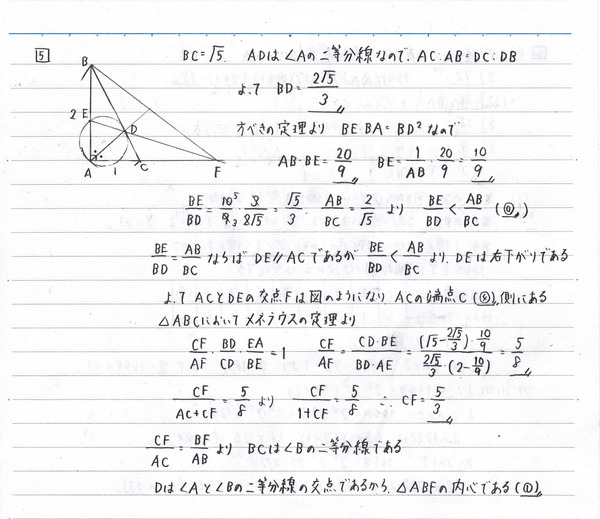 5
BC=√5. ADは∠Aの二等分線なので、AC:AB=DC:DB
よって BD=2√5/3
方べきの定理より BE・BA=BD²なので
AB・BE=20/9 BE=1/AB・20/9=10/9
BE/BD=10/9・3/2√5=√5/3. AB/BC=2/√5 より BE/BD<AB/BC (⓪)
BE/BD=AB/BC ならば DE∥ACであるが BE/BD<AB/BC より、DEは右下がりである
よって ACとDEの交点Fは図のようになり ACの端点C 側にある
△ABCにおいて メネラウスの定理より
CF/AF・BD/CD・EA/BE=1 CF/AF=CD・BE/BD・AE=(√5-2√5/3)・10/9/2√5/3・(2-10/9)=5/8
CF/AC+CF=5/8 より CF/1+CF=5/8 ∴ CF=5/3
CF/AC=BF/AB より BCは∠Bの二等分線である
Dは∠Aと∠Bの二等分線の交点であるから、△ABFの内心である (①)
B
2
E
D
A
1
C
F